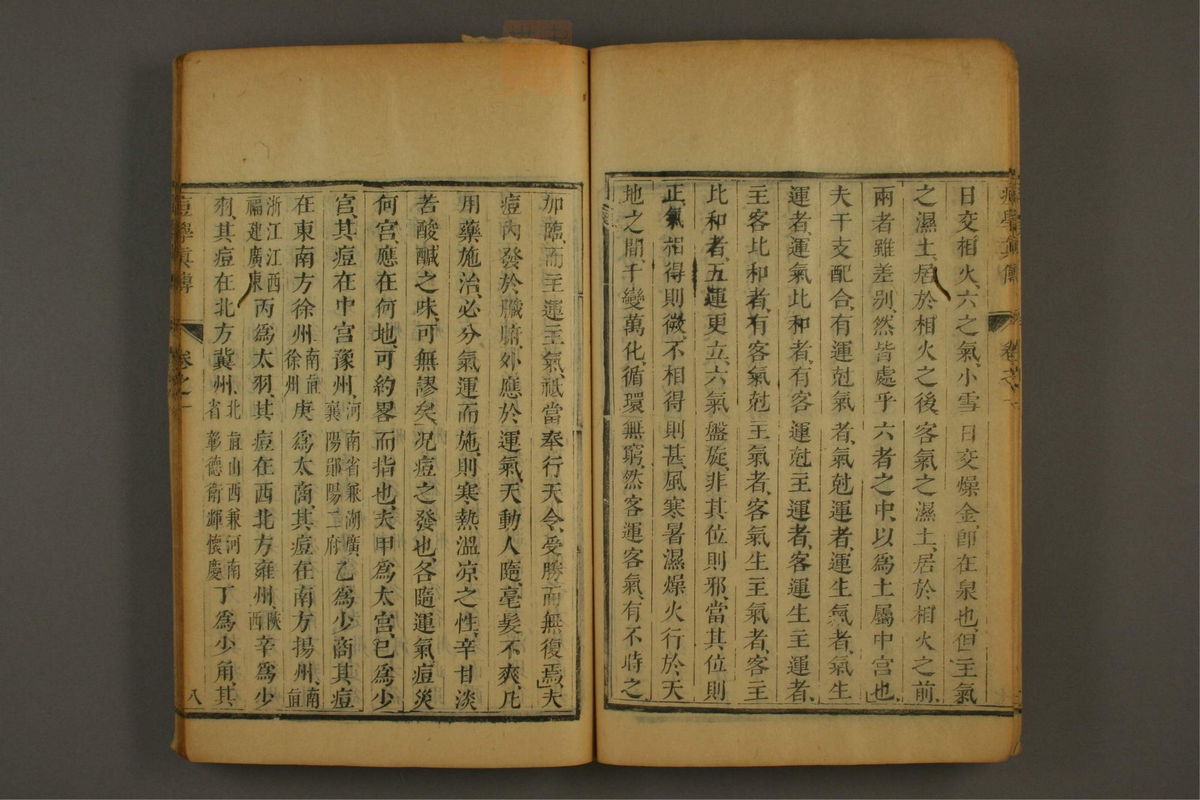 日交相火、六之氣、小雪日交燥金、卽在泉也、但主氣
之濕土、居於相火之後、客氣之濕土、居於相火之前、
兩者雖差别、然皆處乎六者之中、以爲土屬中宮也、
夫干支配合、有運尅氣者、氣尅運者、運生氣者、氣生
運者、運氣比和者、有客運尅主運者、客運生主運者、
主客比和者、有客氣尅主氣者、客氣生主氣者、客主
比和者、五運更立、六氣盤旋、非其位則邪、當其位則
正、氣相得則微、不相得則甚、風寒暑濕燥火行於天
地之間、千變萬化、循環無窮、然客運客氣、有不時之
加臨、而主運主氣、祗當奉行天令、受勝而無復焉、夫
痘內發於臟腑、外應於運氣、天動人隨、毫髮不爽、凡
用藥施治、必分氣運而施、則寒熱溫凉之性、辛甘淡
苦酸鹹之味、可無謬矣、况痘之發也、各隨運氣、痘災
何宮、應在何地、可約畧而指也、夫甲爲太宮、已爲少
宮、其痘在中宮豫州、河南省兼湖廣襄陽鄖陽二府乙爲少商、其痘
在東南方徐州、南直徐州庚爲太商、其痘在南方揚州、南直
浙江江西福建廣東丙爲太羽、其痘在西北方雍州、陝西辛爲少
羽、其痘在北方冀州、北直山西兼河南省彰德衛輝懷慶丁爲少角、其
痘學眞傳
卷之一
八